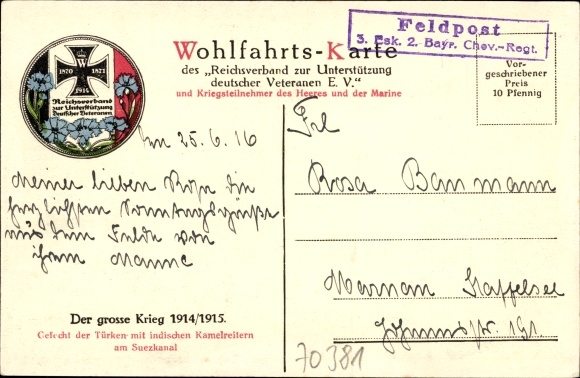 Feldpost
3. Esk. 2. Bayr. Chev.-Regt.
Wohlfahrts-Karte
des „Reichsverband zur Unterstützung
deutscher Veteranen E. V.“
und Kriegsteilnehmer des Heeres und der Marine
Vor-
geschriebener
Preis
10 Pfennig
W
1870 1871
1914
Reichsverband
zur Unterstützung
Deutscher Veteranen
Im 25.6.16
Meiner lieben Rosa die
herzlichsten Sonntagsgrüße
aus dem Felde von
ihrem Manne
Frl
Rosa Baumann
Murnau Staffelsee
70381
Der grosse Krieg 1914/1915.
Gefecht der Türken mit indischen Kamelreitern
am Suezkanal